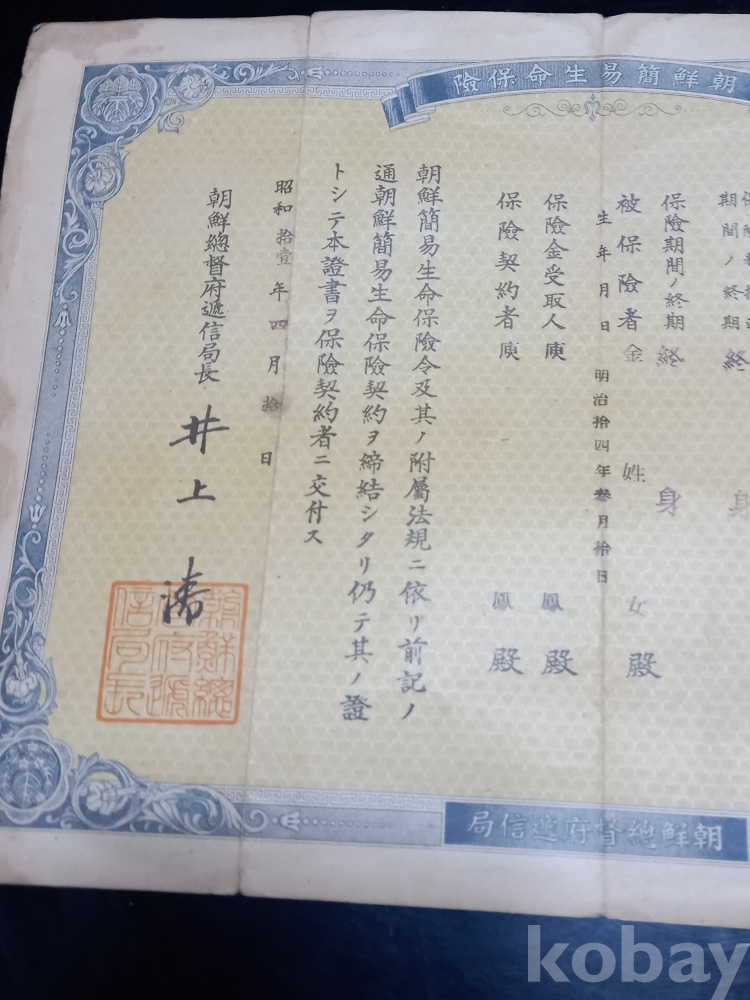 朝鮮簡易生命保險
期間ノ終期 終
保險期間ノ終期 終身
被保險者 金姓女殿
生年月日 明治拾四年參月拾日
保險金受取人 庾鳳殿
保險契約者 庾鳳殿
朝鮮簡易生命保險令及其ノ附屬法規ニ依リ前記ノ
通朝鮮簡易生命保險契約ヲ締結シタリ仍テ其ノ證
トシテ本證書ヲ保險契約者ニ交付ス
昭和拾壹年四月拾日
朝鮮總督府遞信局長 井上
朝鮮總督府遞信局長
朝鮮總督府遞信局
kobay